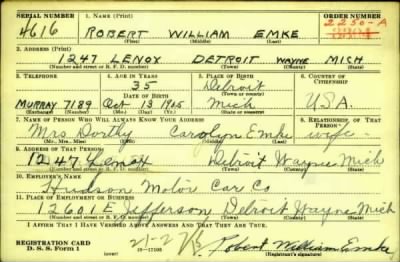 SERIAL NUMBER 1. NAME (Print) ORDER NUMBER
4616 ROBERT WILLIAM EMKE 2250-A
(First) (Middle) (Last)
2. ADDRESS (Print)
1247 LENOX DETROIT WAYNE MICH
(Number and street or R. F. D. number) (Town) (County) (State)
3. TELEPHONE 4. AGE IN YEARS 5. PLACE OF BIRTH 6. COUNTRY OF CITIZENSHIP
35 Detroit
DATE OF BIRTH
MURRAY 7189 Oct 13 1905 Mich U.S.A.
(Exchange) (Number) (Mo.) (Day) (Yr.) (State or country)
7. NAME OF PERSON WHO WILL ALWAYS KNOW YOUR ADDRESS 8. RELATIONSHIP OF THAT PERSON
Mrs Dorthy Carolyn Emke wife
(Mr., Mrs., Miss) (First) (Middle) (Last)
9. ADDRESS OF THAT PERSON
1247 Lenox Detroit Wayne Mich
(Number and street or R. F. D. number) (Town) (County) (State)
10. EMPLOYER'S NAME
Hudson Motor Car Co
11. PLACE OF EMPLOYMENT OR BUSINESS
12601 E Jefferson Detroit Wayne Mich
(Number and street or R. F. D. number) (Town) (County) (State)
I AFFIRM THAT I HAVE VERIFIED ABOVE ANSWERS AND THAT THEY ARE TRUE.
REGISTRATION CARD
D. S. S. Form 1 Robert William Emke
(Registrant's signature)